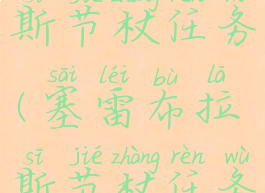 斯节杖任务
sāi léi bù lā
（塞雷布拉
sī jié zhàng rèn wù
斯节杖任务